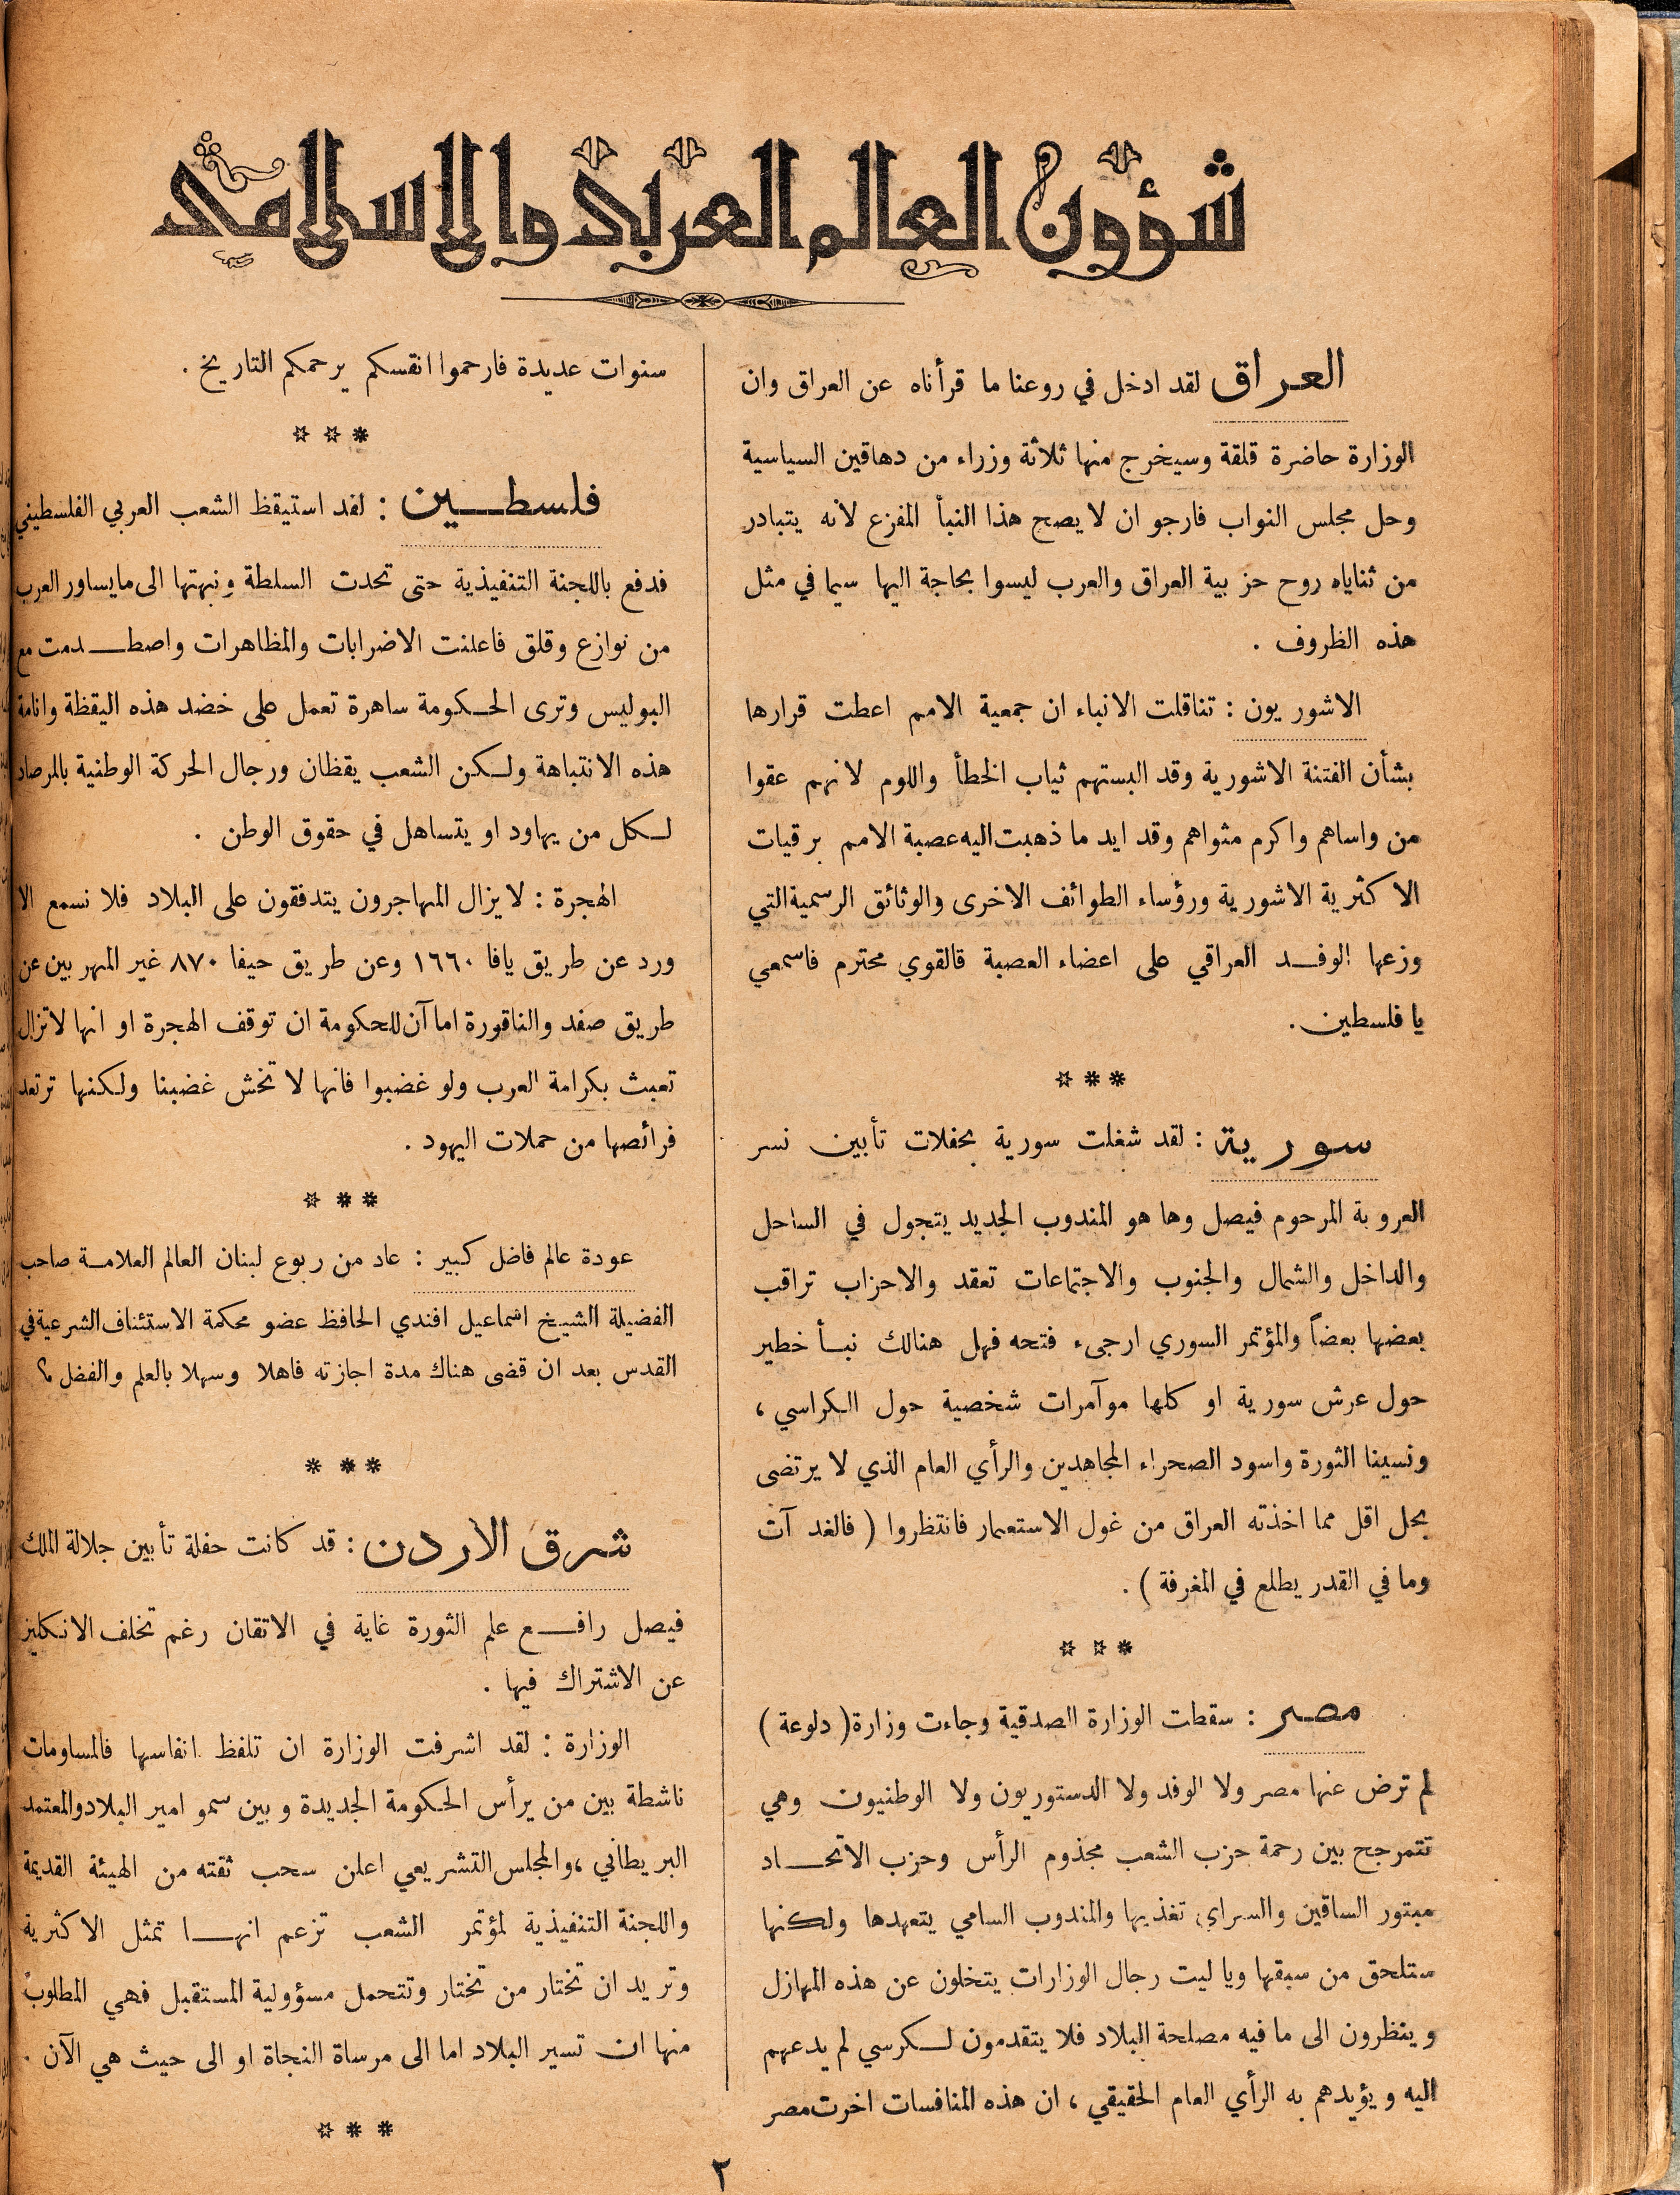 شؤون العالم العربي والاسلامي
العراق لقد ادخل في روعنا ما قرأناه عن العراق وان
الوزارة حاضرة قلقة وسيخرج منها ثلاثة وزراء من دهاقين السياسية
وحل مجلس النواب فارجو ان لا يصح هذا النبأ المفزع لأنه يتبادر
من ثناياه روح حزبية العراق والعرب ليسوا بحاجة اليها سيما في مثل
هذه الظروف .
الاشوريون : تناقلت الانباء ان جمعية الامم اعطت قرارها
بشأن الفتنة الاشورية وقد البستهم ثياب الخطأ واللوم لانهم عقوا
من واساهم واكرم مثواهم وقد ايد ما ذهبت اليه عصبة الامم برقيات
الاكثرية الاشورية ورؤساء الطوائف الاخرى والوثائق الرسمية التي
وزعها الوفد العراقي على اعضاء العصبة قالقوي محترم فاسمعي
يا فلسطين .
***
سورية : لقد شغلت سورية بحفلات تأبين نسر
العروبة المرحوم فيصل وها هو المندوب الجديد يتجول في الساحل
والداخل والشمال والجنوب والاجتماعات تعقد والاحزاب تراقب
بعضها بعضاً والمؤتمر السوري ارجىء فتحه فهل هنالك نبأ خطير
حول عرش سورية او كلها موآمرات شخصية حول الكراسي ،
ونسينا الثورة واسود الصحراء المجاهدين والرأي العام الذي لا يرتضى
بحل اقل مما اخذته العراق من غول الاستعمار فانتظروا ( فالغد آت
وما في القدر يطلع في المغرفة ) .
***
مصر : سقطت الوزارة الصدقية وجاءت وزارة ( دلوعة )
لم ترض عنها مصر ولا الوفد ولا الدستوريون ولا الوطنيون وهي
تتمرجح بين رحمة حزب الشعب مجذوم الرأس وحزب الاتحاد
مبتور الساقين والسراي تغذيها والمندوب السامي يتعهدها ولكنها
ستلحق من سبقها ويا ليت رجال الوزارات يتخلون عن هذه المهازل
وينظرون الى ما فيه مصلحة البلاد فلا يتقدمون لكرسي لم يدعهم
اليه ويؤيدهم به الرأي العام الحقيقي ، ان هذه المنافسات اخرت مصر
سنوات عديدة فارحموا انقسكم يرحمكم التاريخ .
***
فلسطين : لقد استيقظ الشعب العربي الفلسطيني
فدفع باللجنة التنفيذية حتى تحدت السلطة ونبهتها الى ما يساور العرب
من نوازع وقلق فاعلنت الاضرابات والمظاهرات واصطدمت مع
البوليس وترى الحكومة ساهرة تعمل على خضد هذه اليقظة وانامة
هذه الانتباهة ولكن الشعب يقظان ورجال الحركة الوطنية بالمرصاد
لكل من يهاود او يتساهل في حقوق الوطن .
الهجرة : لا يزال المهاجرون يتدفقون على البلاد فلا نسمع الا
ورد عن طريق يافا ١٦٦٠ وعن طريق حيفا ٨٧٠ غير المهربين عن
طريق صفد والناقورة اما آن للحكومة ان توقف الهجرة او انها لا تزال
تعبث بكرامة العرب ولو غضبوا فانها لا تخش غضبنا ولكنها ترتعد
فرائصها من حملات اليهود .
***
عودة عالم فاضل كبير : عاد من ربوع لبنان العالم العلامة صاحب
الفضيلة الشيخ اسماعيل افندي الحافظ عضو محكمة الاستئناف الشرعية في
القدس بعد ان قضى هناك مدة اجازته فاهلا وسهلا بالعلم والفضل ؟
***
شرق الاردن : قد كانت حفلة تأبين جلالة الملك
فيصل رافع علم الثورة غاية في الاتقان رغم تخلف الانكليز
عن الاشتراك فيها .
الوزارة : لقد اشرفت الوزارة ان تلفظ انفاسها فالمساومات
ناشطة بين من يرأس الحكومة الجديدة وبين سمو امير البلاد والمعتمد
البريطاني ، والمجلس التشريعي اعلن سحب ثقته من الهيئة القديمة
واللجنة التنفيذية لمؤتمر الشعب تزعم انها تمثل الاكثرية
وتريد ان تختار من تختار وتتحمل مسؤولية المستقبل فهي المطلوب
منها ان تسير البلاد اما الى مرساة النجاة او الى حيث هي الآن .
***
٢